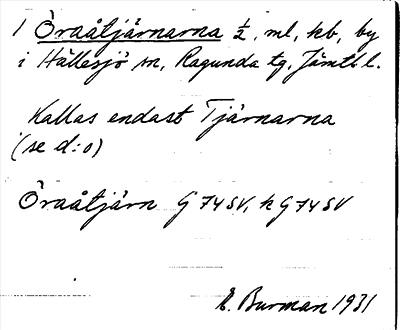 1 Öraåtjärnarna ½, ml, kb, by
i Hällesjö sn, Ragunda tg, Jämtl. l.
Kallas endast Tjärnarna
(se d:o)
Öraåtjärn G 74 SV, k G 74 SV
E. Burman 1931